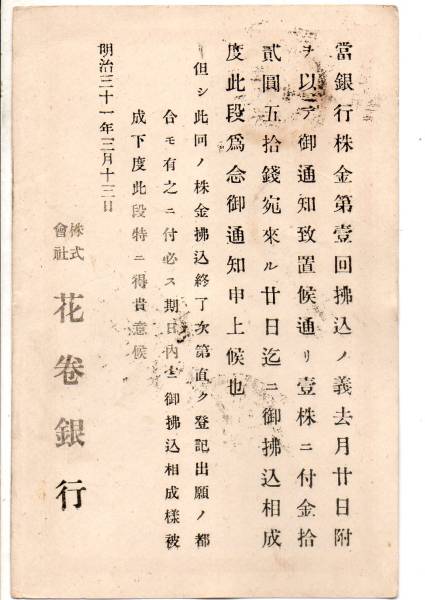 當銀行株金第壹回拂込ノ義去月廿日附
ヲ以テ御通知致置候通リ壹株ニ付金拾
貳圓五拾錢宛來ル廿日迄ニ御拂込相成
度此段爲念御通知申上候也
但シ此回ノ株金拂込終了次第直ク登記出願ノ都
合モ有之ニ付必ス期日內ニ御拂込相成樣被
成下度此段特ニ得貴意候
明治三十一年三月十三日
株式會社
花卷銀行